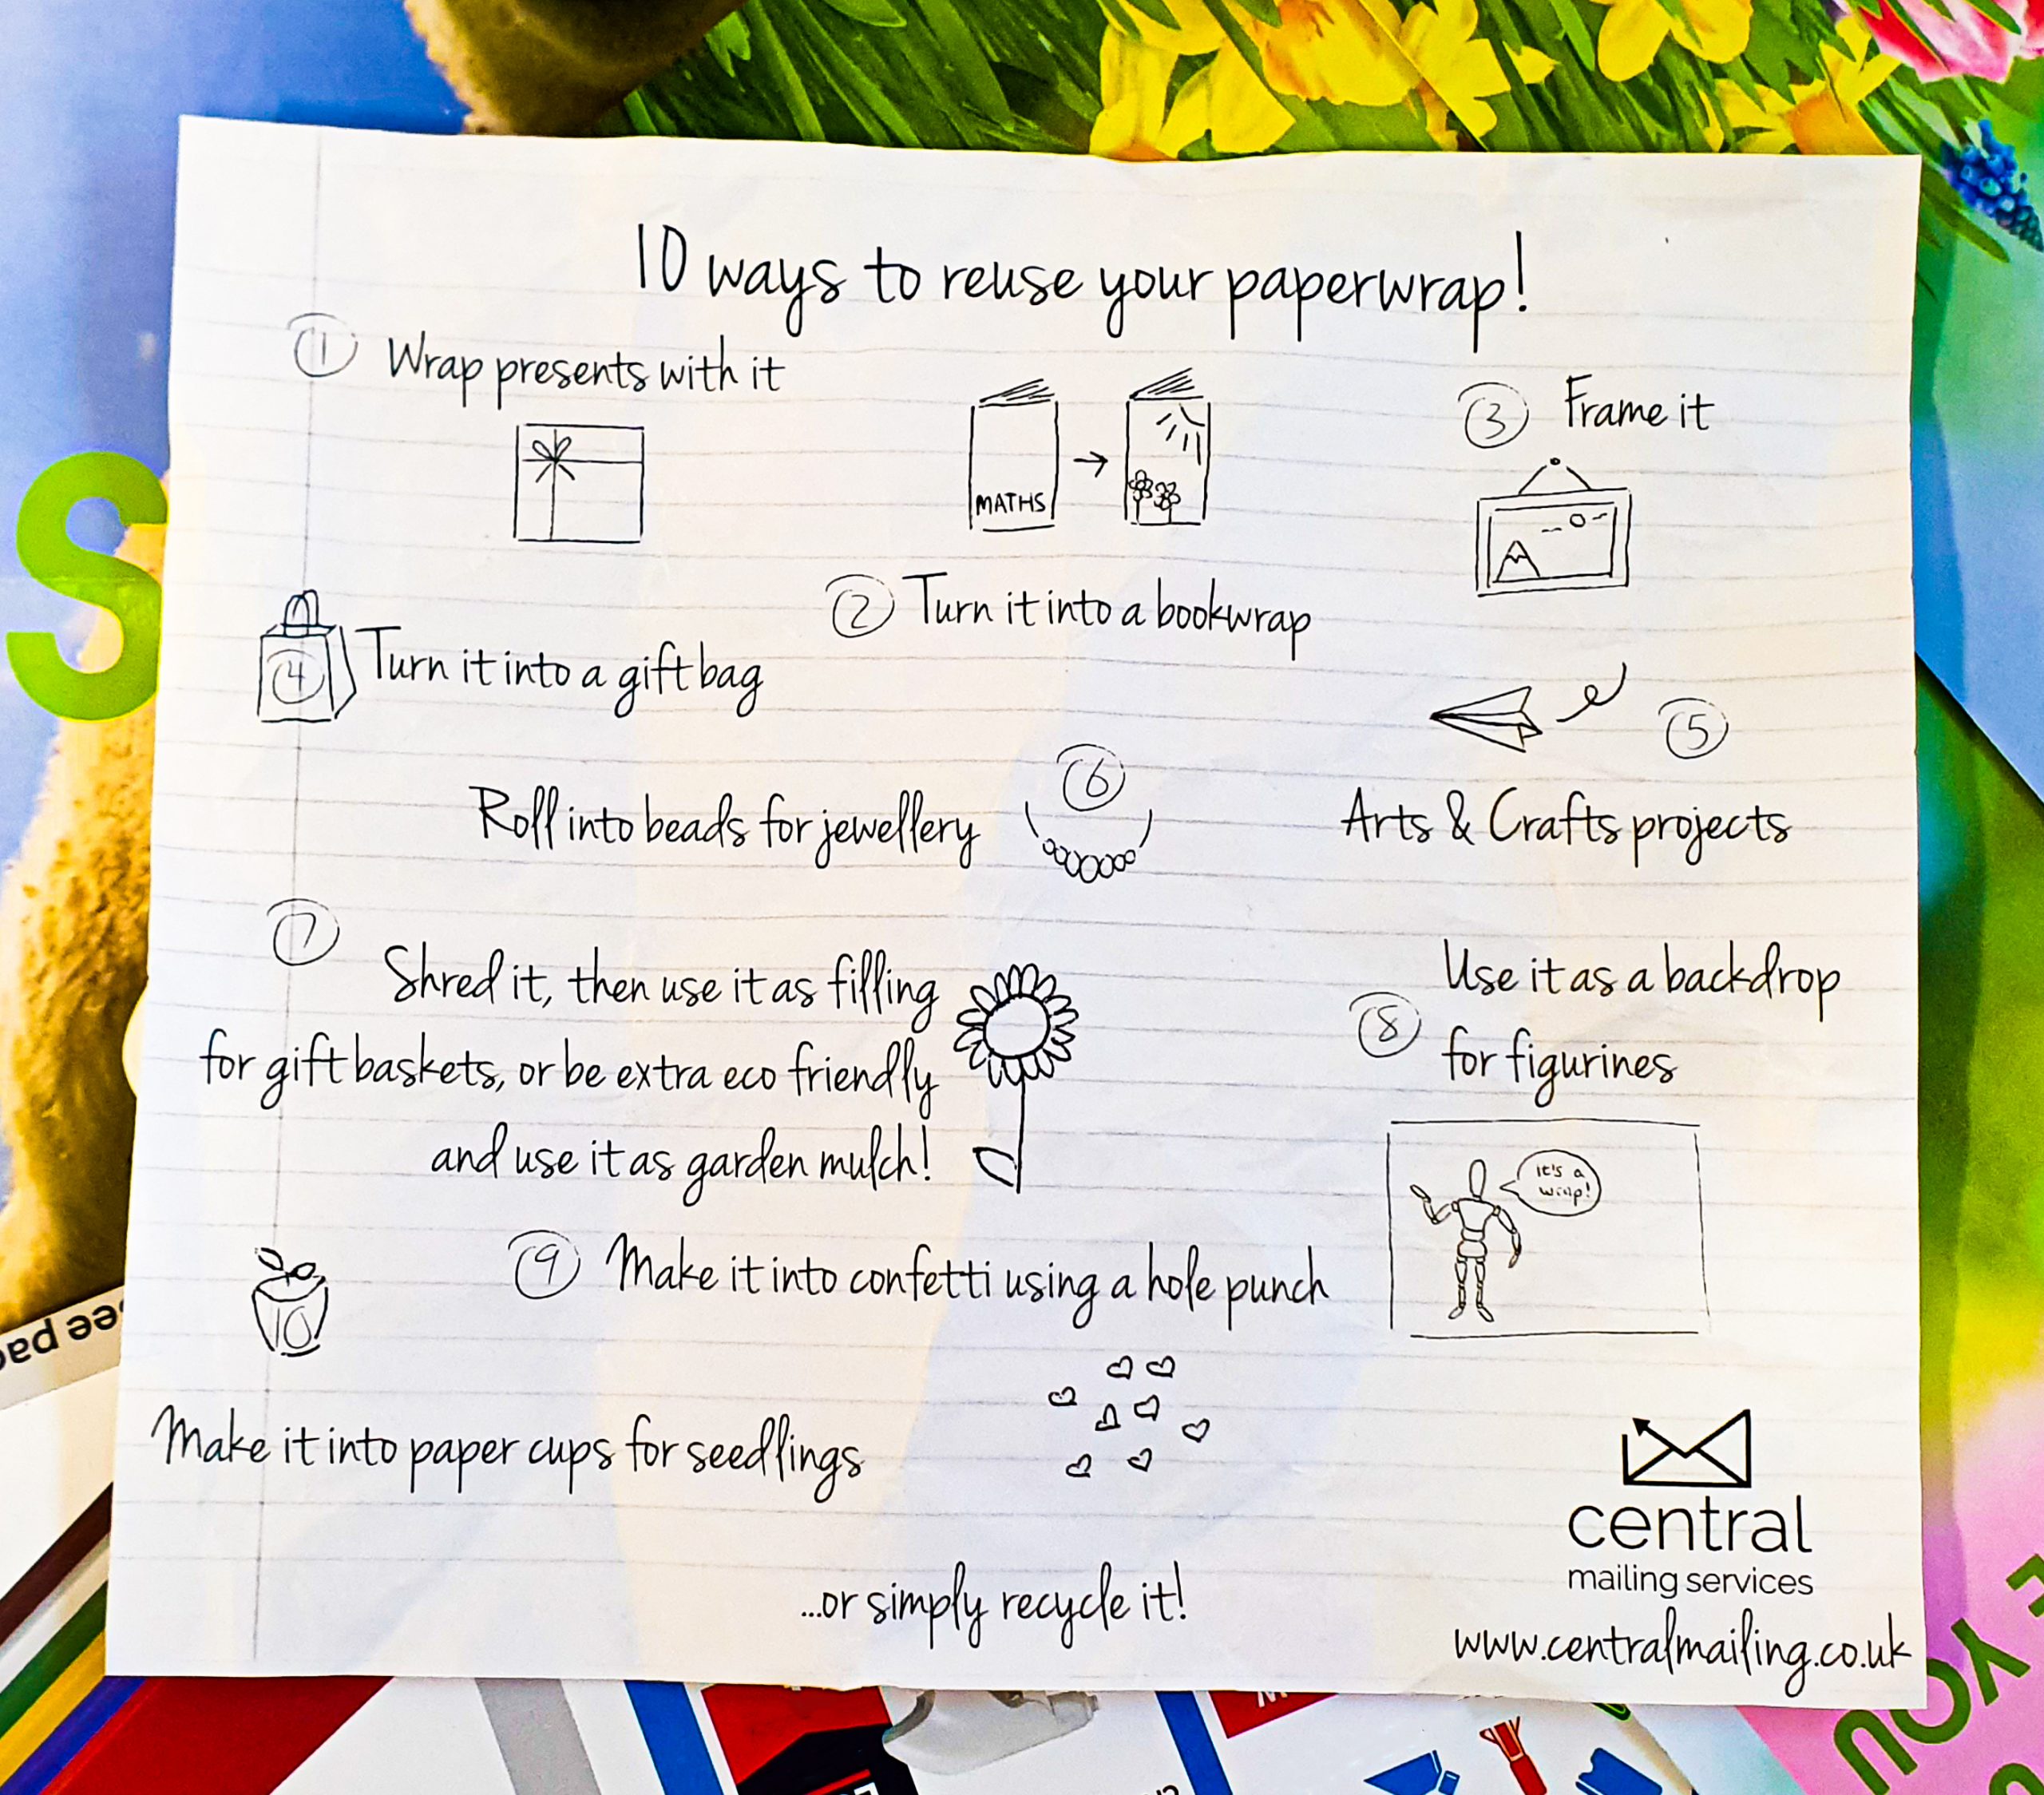 10 ways to reuse your paperwrap!
1 Wrap presents with it
MATHS
2 Turn it into a bookwrap
3 Frame it
4 Turn it into a gift bag
5
Arts & Crafts projects
6
Roll into beads for jewellery
7
Shred it, then use it as filling
for gift baskets, or be extra eco friendly
and use it as garden mulch!
8
Use it as a backdrop
for figurines
it's a
wrap!
9 Make it into confetti using a hole punch
10
Make it into paper cups for seedlings
...or simply recycle it!
central
mailing services
www.centralmailing.co.uk
S
YOU